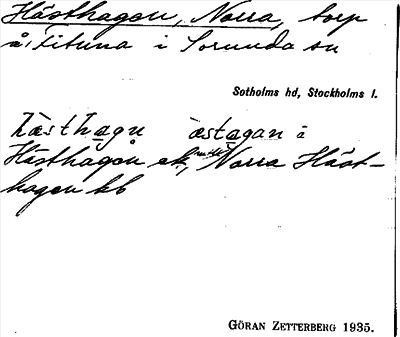 Hästhagen, Norra, torp
å Fituna i Sorunda sn
Sotholms hd, Stockholms l.
hæsthagn æstagan å
Hästhagen ek, Norra Häst-
hagen kb
GÖRAN ZETTERBERG 1935.